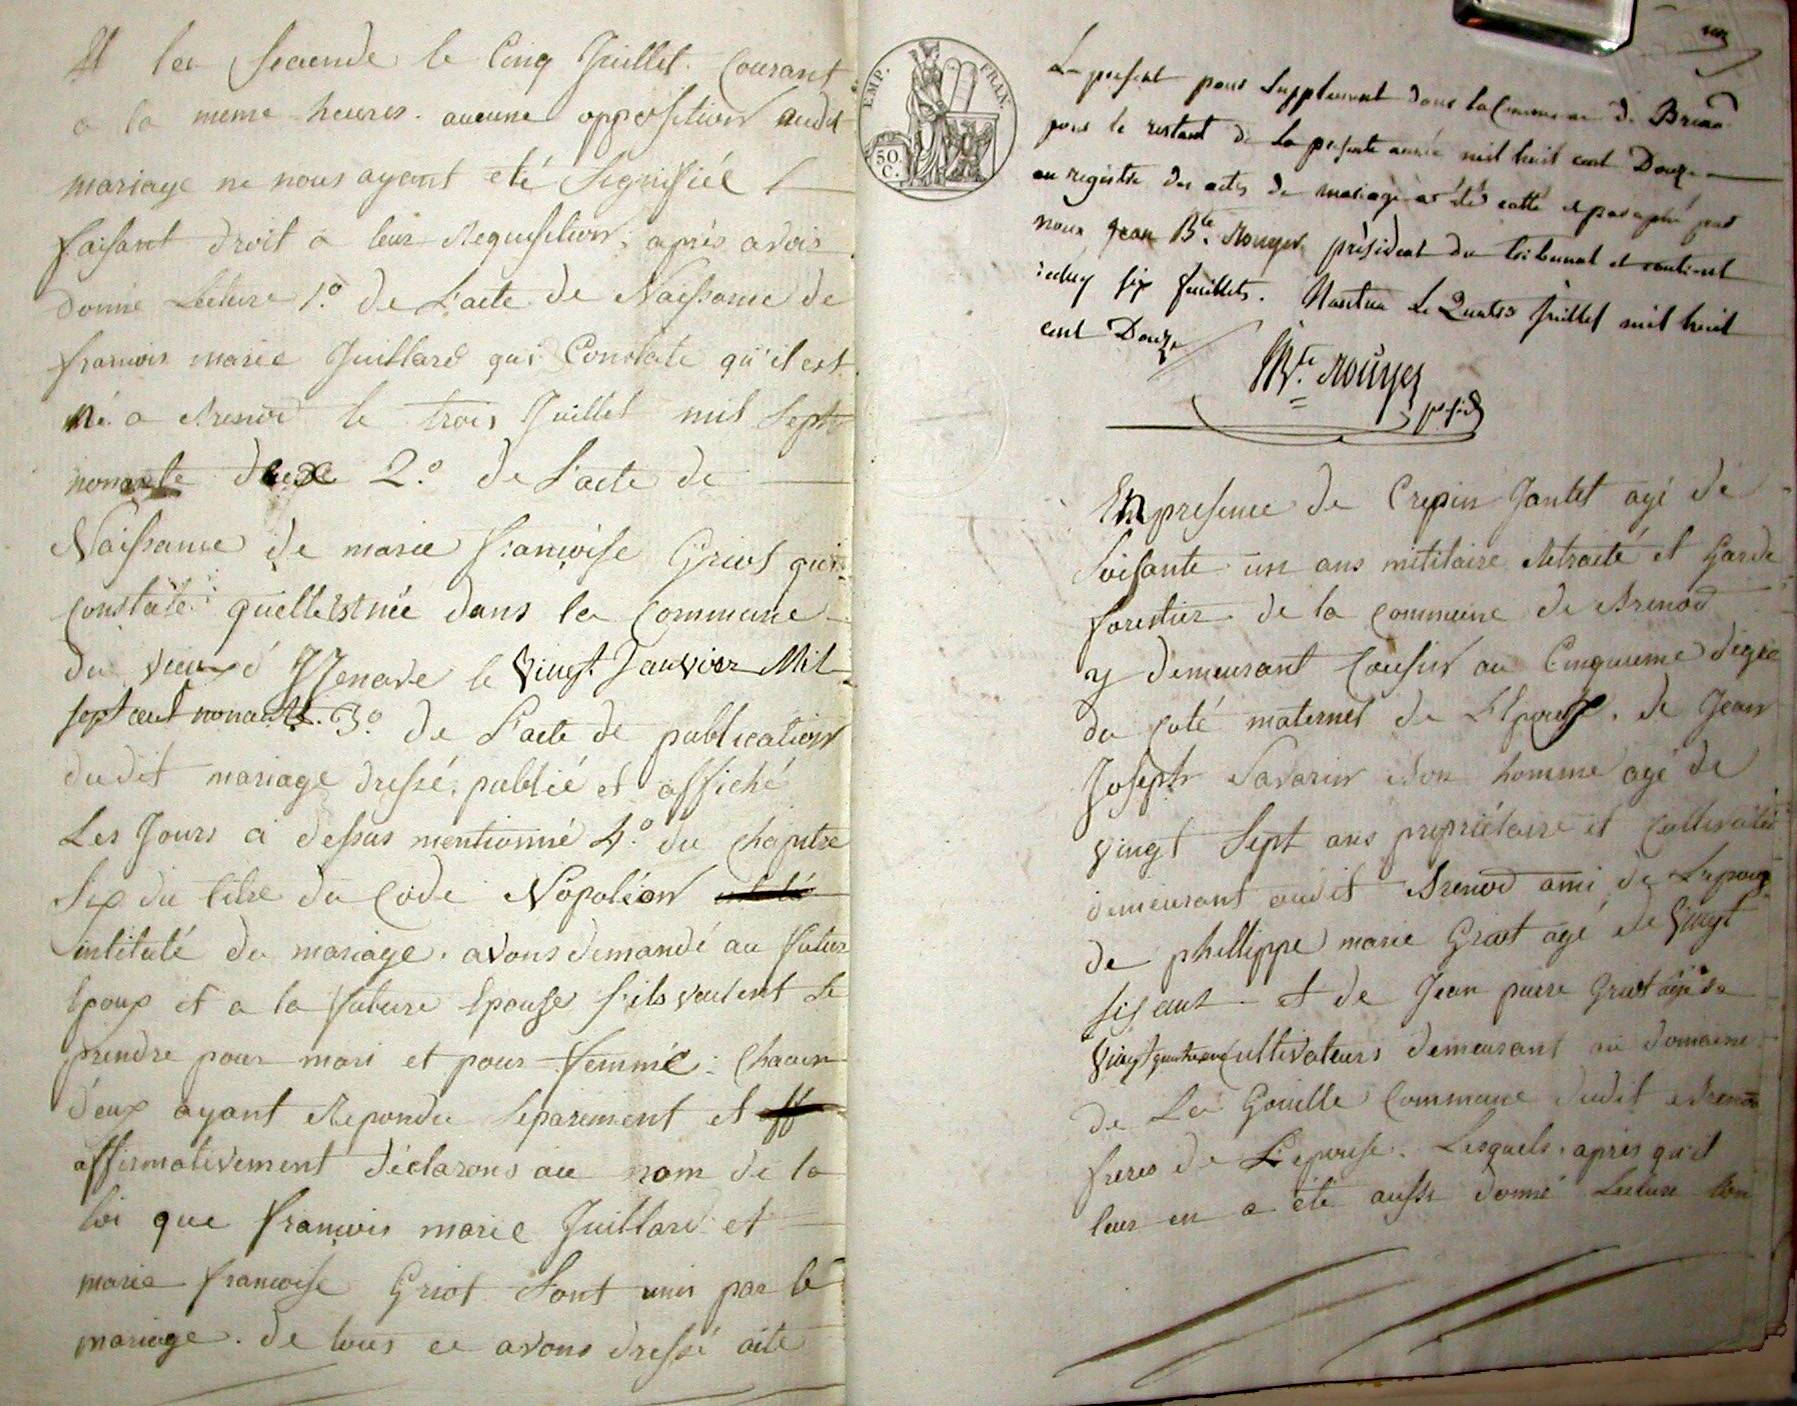 Et la seconde le Cinq Juillet Courant
a la meme heures. aucune opposition audit
mariage ne nous ayant eté Signifiée
faisant droit a leur Requisition, après avoir
donné Lecture 1.º de L'acte de Naissance de
francois marie Juillard qui Constate qu'il est
Né a Brenod le trois Juillet mil Sept
nonante deux 2.º de L'acte de
Naissance de marie françoise Griot qui
constate quelle est née dans la Commune
du vieux d' le Vingt Janvier Mil
sept cent nonante. 3º de L'acte de publication
dudit mariage dressé, publié et affiché
Les Jours ci dessus mentionné 4.º du chapitre
Six du titre du Code Napoléon
intitulé du mariage. avons demandé au futur
Epoux et a la future Epouse s'ils veulent se
prendre pour mari et pour femme: Chacun
d'eux ayant Repondu Separement et
affirmativement déclarons au nom de la
loi que françois marie Juillard et
marie francoise Griot Sont unis par le
mariage. de tous ce avons dressé acte
EMP. FRAN.
50.
C.
Le present pour Supplement dans la Commune de Brenod
pour le restant de La presente année mil huit cent Douze
au registre des actes de mariage a été cotté et paraphé par
nous Jean B.te Rouyer président du tribunal et contient
six feuillets. Nantua Le Quatre Juillet mil huit
cent Douze
B.te Rouyer
presid
En presence de Crepin Jantet agé de
Soisante un ans militaire Retraité et Garde
forestier de la commune de Brenod
y demeurant Cousin au Cinquieme degré
du coté maternel de L'Epoux. de Jean
Joseph Savarin Bon homme agé de
vingt Sept ans propriétaire et Cultivateur
demeurant audit Brenod ami de L'epoux
de phillippe marie Griot agé de Vingt
six ans et de Jean pierre Griot agé de
Vingt quatre ans Cultivateurs demeurant au domaine
de La Gouille Commune dudit Brenod
freres de L'epouse. Lesquels, après qu'il
leur en a été aussi donné Lecture